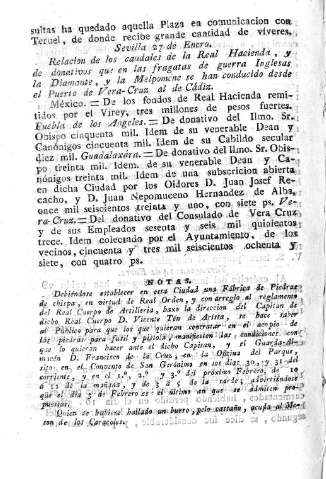 sultas ha quedado aquella Plaza en comunicacion con
Teruel, de donde recibe grande cantidad de víveres.
Sevilla 27 de Enero.
Relacion de los caudales de la Real Hacienda, y
de donativos que en las fragatas de guerra Inglesas
la Diamante, y la Melpomene se han conducido desde
el Puerto de Vera-Cruz al de Cádiz.
México. = De los fondos de Real Hacienda remi-
tidos por el Virey, tres millones de pesos fuertes.
Puebla de los Angeles. = De donativo del Ilmo. Sr.
Obispo cinquenta mil. Idem de su venerable Dean y
Canónigos cincuenta mil. Idem de su Cabildo secular
diez mil. Guadalaxâra. = De donativo del Ilmo. Sr. Obis-
po treinta mil. Idem. de su venerable Dean y Ca-
nónigos treinta mil. Idem de una subscripcion abierta
en dicha Ciudad por los Oidores D. Juan Josef Re-
cacho, y D. Juan Nepomuceno Hernandez de Alba,
once mil seiscientos treinta y uno, con siete ps. Ve-
ra-Cruz. = Del donativo del Consulado de Vera Cruz
y de sus Empleados sesenta y seis mil quinientos
trece. Idem colectado por el Ayuntamiento, de los
vecinos, cincuenta y tres mil seiscientos ochenta y
siete, con quatro ps.
NOTAS.
Debiéndose establecer en esta Ciudad una Fábrica de Piedras
de chispa, en virtud de Real Orden, y con arreglo al reglamento
del Real Cuerpo de Artilleria, baxo la direccion del Capitan de
dicho Real Cuerpo D. Vicente Ten de Arista, se hace saber
al Público para que los que quieran contratar en el acopio de
las piedras para fusil y pistola, manifiesten las condiciones con
que lo quieran hacer ante el dicho Capitan, y el Guarda-Al-
macen D. Francisco de la Cruz, en la Oficina del Parque,
sito en el Convento de San Gerónimo en los dias 30, y 31 del
corriente, y en el 1.º, 2.º y 3.º del próximo Febrero, de 10
á 12 de la mañana, y de 3 á 5 de la tarde, advirtiéndose
que el dia 5 de Febrero es el último en que se admiten pro-
puestas.
Quien se hubiese hallado un burro, pelo castaño, acuda al Me-
son de los Caracoles.